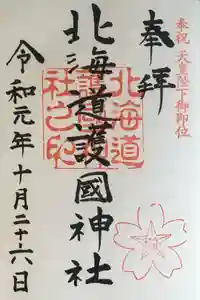 奉祝 天皇陛下御即位
奉拝
北海道護國神社
北海道護國神社之印
令和元年十月二十六日